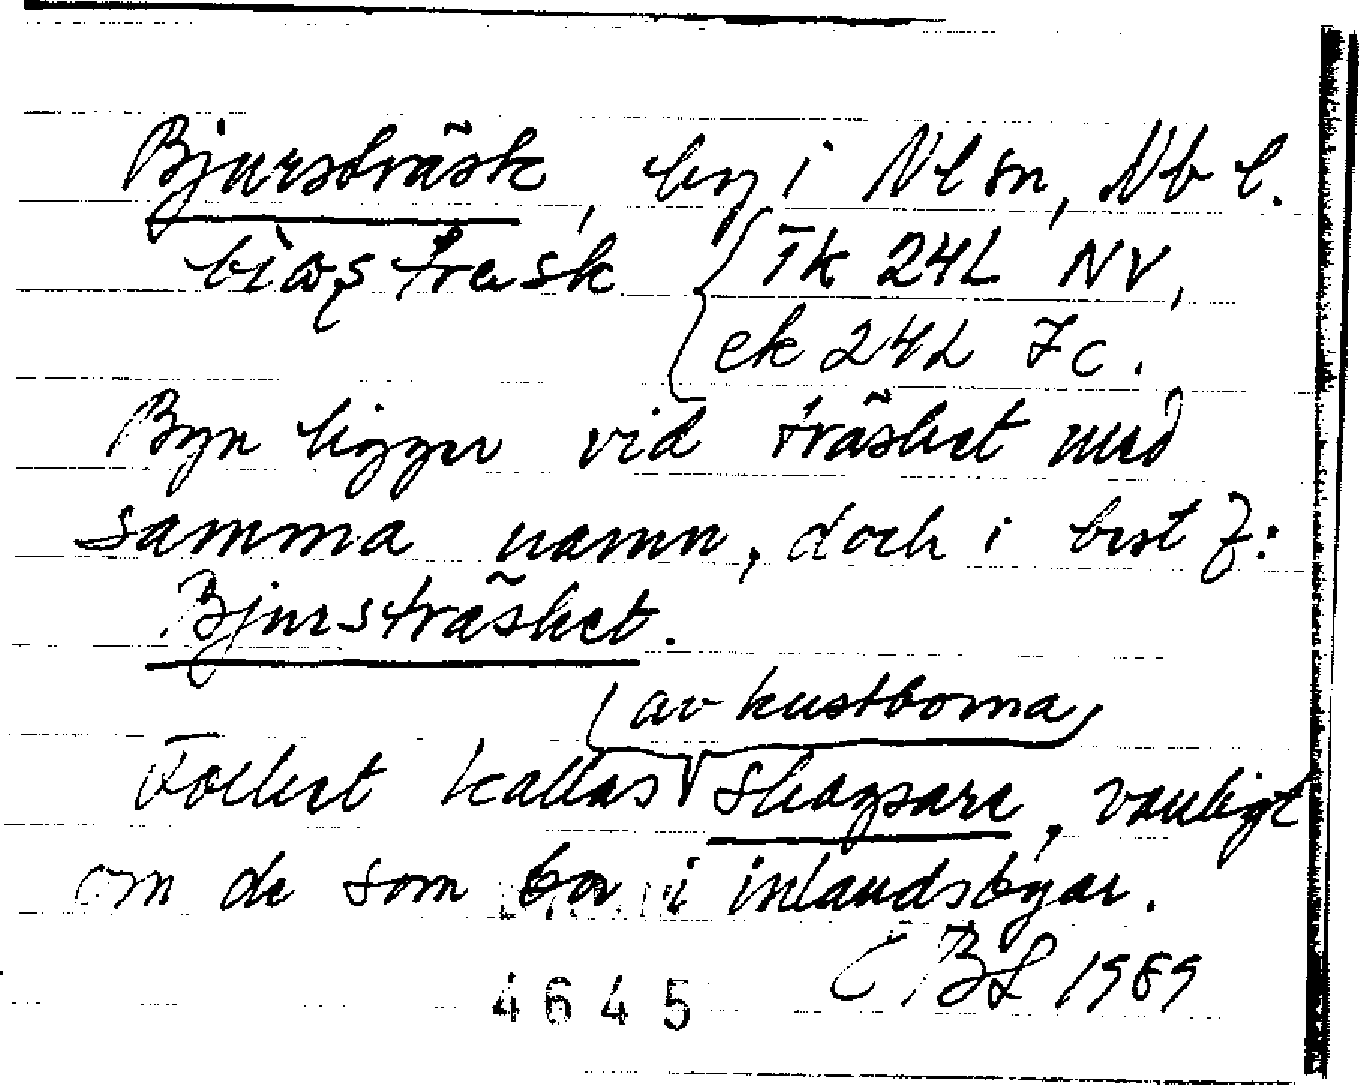 Bjursträsk, by i Nl sn, Nb l.
Tk 24L NV,
ek 24L 7c.
Byn ligger vid träsket med
samma namn, doch i best f:
Bjursträsket.
av kustborna
Folket kallas skogsare, vanligt
om de som bor i inlandsbyar.
CBL 1989
4645